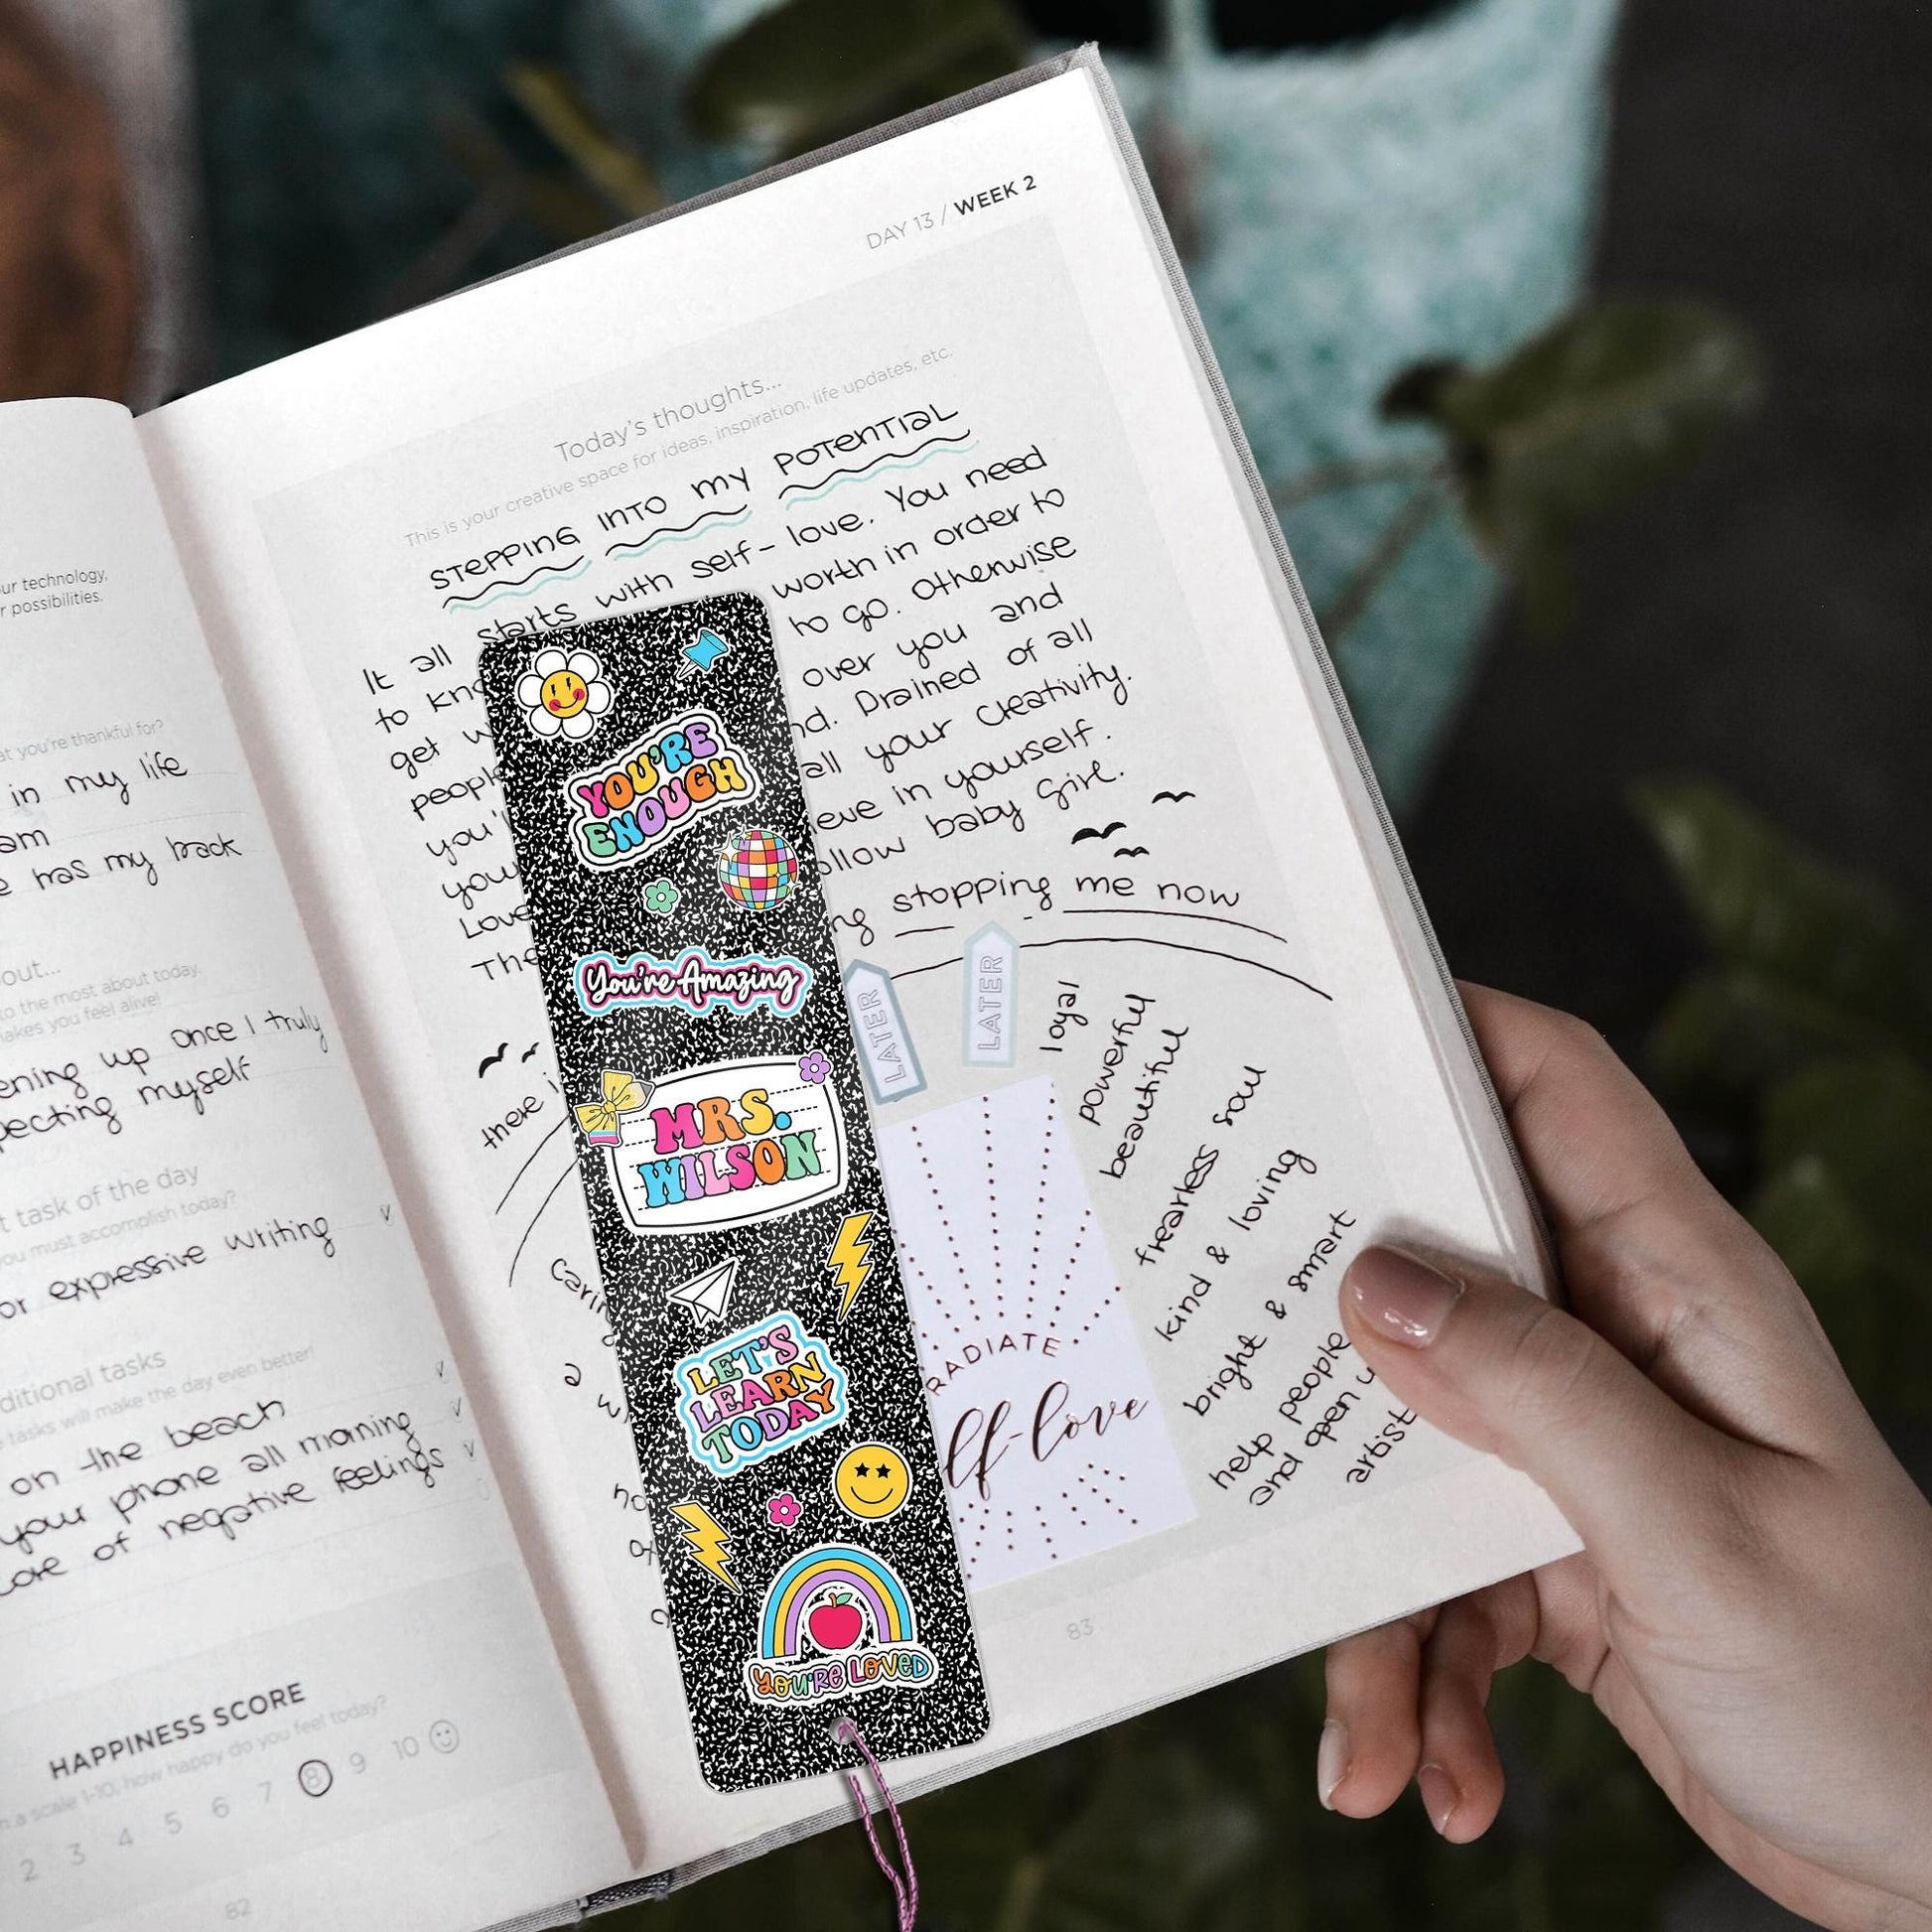 ur technology,
r possibilities.
at you're thankful for?
in my life
am
e has my back
out...
to the most about today.
akes you feel alive!
ening up once I truly
pecting myself
t task of the day
you must accomplish today?
or expressive writing
ditional tasks
tasks will make the day even better!
on the beach
your phone all morning
care of negative feelings
HAPPINESS SCORE
n a scale 1-10, how happy do you feel today?
2 3 4 5 6 7 8 9 10
82
DAY 13 / WEEK 2
Today's thoughts...
This is your creative space for ideas, inspiration, life updates, etc.
STEPPING INTO MY POTENTIAL
It all starts with self-love. You need
to kno worth in order to
get w to go. Otherwise
people over you and
you'l nd. Drained of all
your all your creativity.
Love ieve in yourself.
The ollow baby girl.
there i ng stopping me now
LATER
LATER
loyal
powerful
beautiful
fearless soul
kind & loving
bright & smart
help people
and open u
artist
RADIATE
lf-love
83
YOU'RE
ENOUGH
You're Amazing
MRS.
WILSON
LET'S
LEARN
TODAY
YOU'RE LOVED